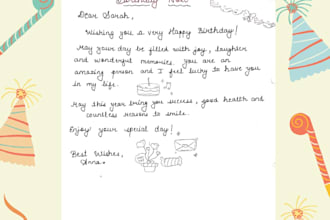 Birthday Note
Dear Sarah,
Wishing you a very Happy Birthday!
May your day be filled with joy, laughter
and wonderful memories. you are an
amazing person and I feel lucky to have you
in my life.
May this year bring you success, good health and
countless reasons to smile.
Enjoy your special day!
Best Wishes,
Anna.